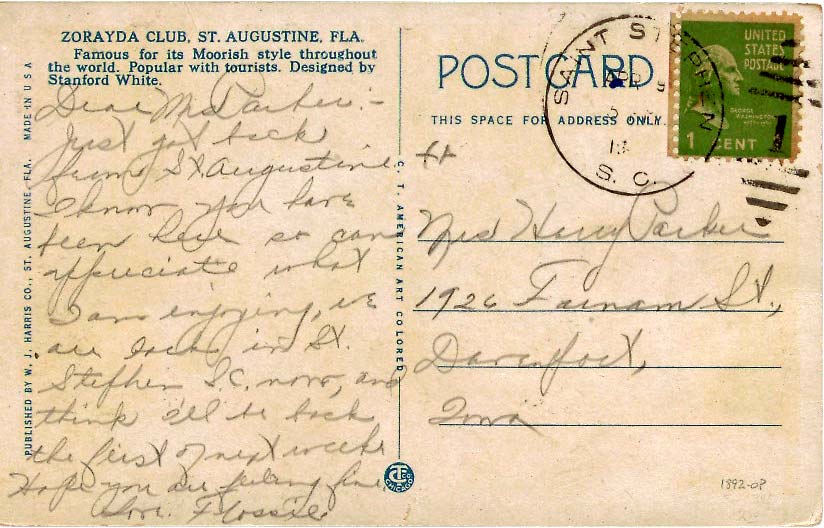 ZORAYDA CLUB, ST. AUGUSTINE, FLA.
Famous for its Moorish style throughout
the world. Popular with tourists. Designed by
Stanford White.
Dear Mrs Parker:-
Just got back
from St Augustine
I know you have
been here so can
appreciate what
I am enjoying, we
are back in St.
Stephen S.C. now, and
think I'll be back
the first of next week
Hope you are feeling fine
Love. Flossie
PUBLISHED BY W. J. HARRIS CO., ST. AUGUSTINE, FLA. MADE IN U S A
C. T. AMERICAN ART COLORED
CHICAGO
POST CARD
THIS SPACE FOR ADDRESS ONLY.
SAINT STEPHEN
APR 9
S. C.
UNITED
STATES
POSTAGE
GEORGE
WASHINGTON
1 CENT
1
Mrs Harry Parker
1926 Farnam St.,
Davenport,
Iowa
1892-08